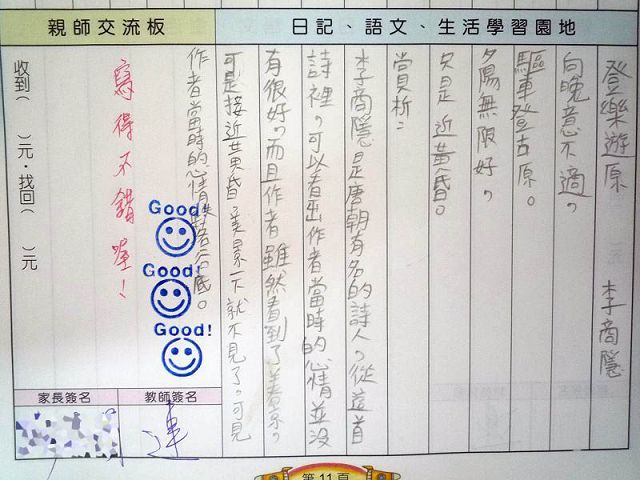 日記、語文、生活學習園地
登樂遊原 李商隱
向晚意不適，
驅車登古原。
夕陽無限好，
只是近黃昏。
賞析：
李商隱是唐朝有名的詩人，從這首
詩裡，可以看出作者當時的心情並沒
有很好，而且作者雖然看到了美景，
可是接近黃昏，美景一下就不見了，可見
作者當時的心情跌落谷底。
親師交流板
寫得不錯喔！
Good!
Good!
Good!
收到（ ）元，找回（ ）元
教師簽名
連
家長簽名
第11頁